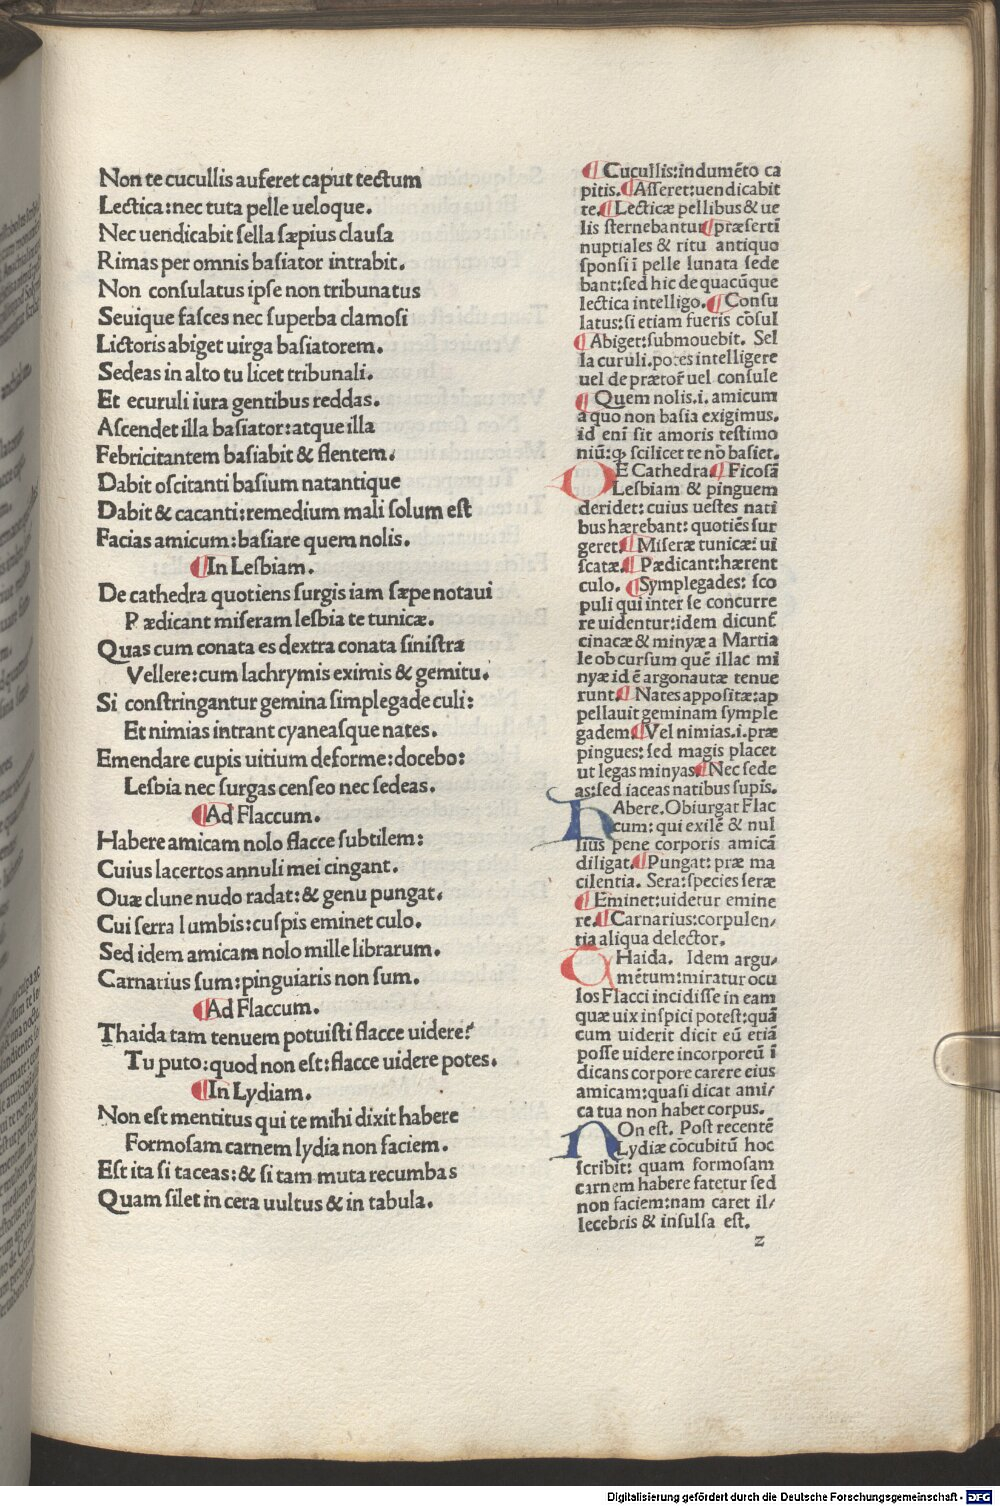 Non te cucullis auferet caput tectum
Lectica:nec tuta pelle ueloque.
Nec uendicabit sella sæpius clausa
Rimas per omnis basiator intrabit.
Non consulatus ipse non tribunatus
Seuique fasces nec superba clamosi
Lictoris abiget uirga basiatorem.
Sedeas in alto tu licet tribunali.
Et ecuruli iura gentibus reddas.
Ascendet illa basiator:atque illa
Febricitantem basiabit & flentem.
Dabit oscitanti basium natantique
Dabit & cacanti:remedium mali solum est
Facias amicum:basiare quem nolis.
¶In Lesbiam.
De cathedra quotiens surgis iam sæpe notaui
Pædicant miseram lesbia te tunicæ.
Quas cum conata es dextra conata sinistra
Vellere:cum lachrymis eximis & gemitu.
Si constringantur gemina simplegade culi:
Et nimias intrant cyaneasque nates.
Emendare cupis uitium deforme:docebo:
Lesbia nec surgas censeo nec sedeas.
¶Ad Flaccum.
Habere amicam nolo flacce subtilem:
Cuius lacertos annuli mei cingant.
Quæ clune nudo radat:& genu pungat.
Cui serra lumbis:cuspis eminet culo.
Sed idem amicam nolo mille librarum.
Carnarius sum:pinguiaris non sum.
¶Ad Flaccum.
Thaida tam tenuem potuisti flacce uidere?
Tu puto:quod non est:flacce uidere potes.
¶In Lydiam.
Non est mentitus qui te mihi dixit habere
Formosam carnem lydia non faciem.
Est ita si taceas:& si tam muta recumbas
Quam silet in cera uultus & in tabula.
¶Cucullis:indumēto ca
pitis.¶Asseret:uendicabit
te.¶Lecticæ pellibus & ue
lis sternebantur¶præserti
nuptiales & ritu antiquo
sponsi ī pelle lunata sede
bant:sed hic de quacūque
lectica intelligo.¶Consu
latus:si etiam fueris cōsul
¶Abiget:submouebit. Sel
la curuli.potes intelligere
uel de prætor̄ uel consule
¶Quem nolis.i.amicum
a quo non basia exigimus.
id enī sit amoris testimo
niū:ꝙ scilicet te nō basiet.
DE Cathedra¶Ficosā
Lesbiam & pinguem
deridet: cuius uestes nati
bus hærebant: quotiēs sur
geret¶Miseræ tunicæ: ui
scatæ.¶Pædicant:hærent
culo.¶Symplegades: sco
puli qui inter se concurre
re uidentur:idem dicunt̄
cinacæ & minyæ a Martia
le ob cursum quē illac mi
nyæ id ē argonautæ tenue
runt¶Nates appositæ:ap
pellauit geminam symple
gadem¶Vel nimias.i.præ
pingues: sed magis placet
ut legas minyas¶Nec sede
as:sed iaceas natibus supīs.
HAbere.Obiurgat Flac
cum: qui exilē & nul
lius pene corporis amicā
diligat.¶Pungat: præ ma
cilentia. Sera:species seræ
¶Eminet:uidetur emine
re.¶Carnarius:corpulen/
tia aliqua delector.
THaida. Idem argu/
mētum:miratur ocu
los Flacci incidisse in eam
quæ uix inspici potest:quā
cum uiderit dicit eū etiā
posse uidere incorporeū ī
dicans corpore carere eius
amicam:quasi dicat ami/
ca tua non habet corpus.
NOn est. Post recentē
Lydiæ cōcubitū hoc
scribit: quam formosam
carnem habere fatetur sed
non faciem:nam caret il/
lecebris & insulsa est.
z
Digitalisierung gefördert durch die Deutsche Forschungsgemeinschaft - DFG